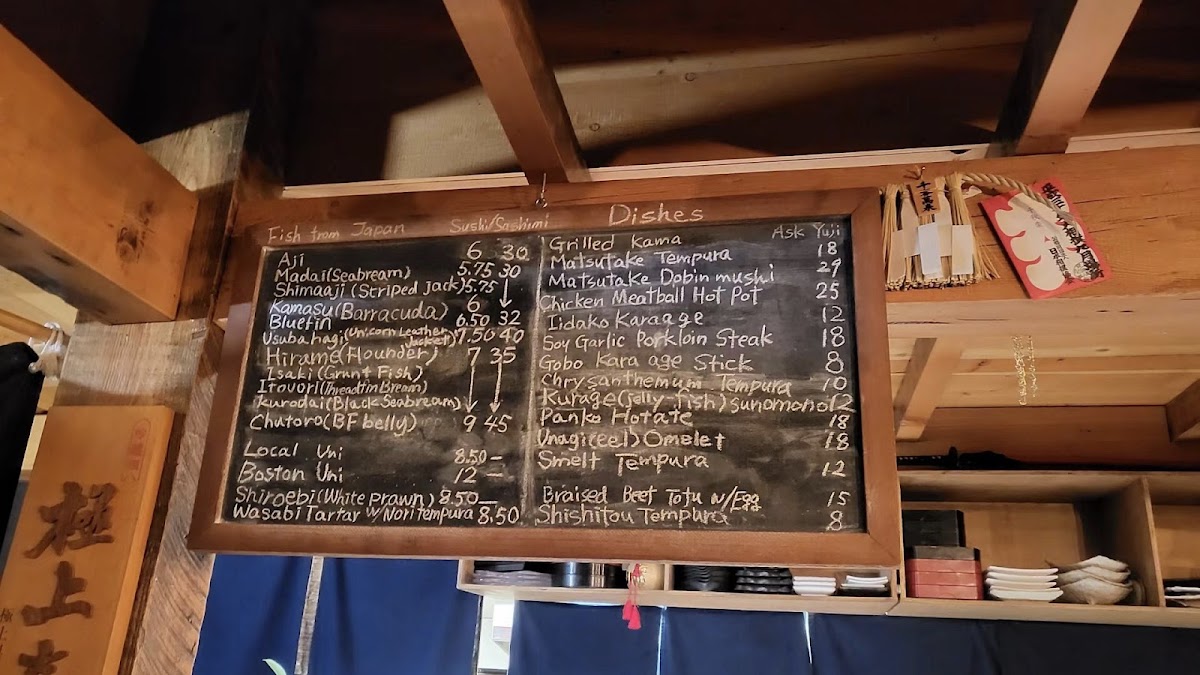 Fish from Japan Sushi/Sashimi
Aji 6 30
Madai(Seabream) 5.75 30
Shimaaji (Striped Jack) 5.75 ↓
Kamasu(Barracuda) 6
Bluefin 6.50 32
Usubahagi(Unicorn Leather Jacket) 7.50 40
Hirame(Flounder) 7 35
Isaki (Grunt Fish)
Itoyori(Threadfin Bream)
Kurodai(Black Seabream) ↓ ↓
Chutoro(BF belly) 9 45
Local Uni 8.50 —
Boston Uni 12 —
Shiroebi(White Prawn) 8.50 —
Wasabi Tartar w/ Nori tempura 8.50
Dishes
Grilled Kama Ask Yuji
Matsutake Tempura 18
Matsutake Dobin mushi 29
Chicken Meatball Hot Pot 25
Iidako Karaage 12
Soy Garlic Porkloin Steak 18
Gobo Kara age Stick 8
Chrysanthemum Tempura 10
Kurage(Jelly-fish) sunomono 12
Panko Hotate 18
Unagi(eel) Omelet 18
Smelt Tempura 12
Braised Beef Tofu w/Egg 15
Shishitou Tempura 8
極上